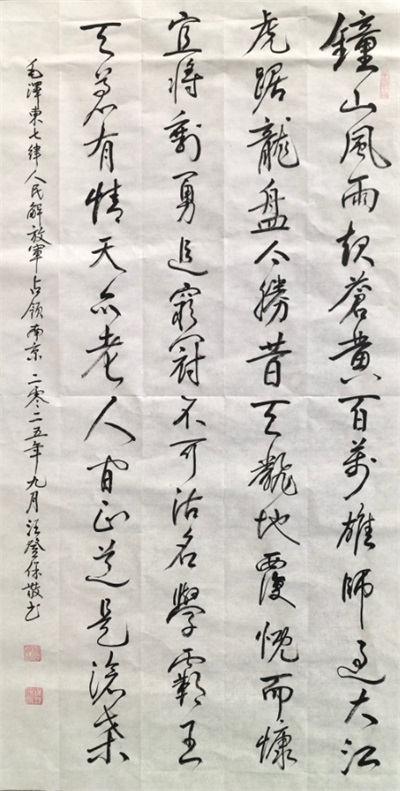 鐘山風雨起蒼黄百萬雄師過大江
虎踞龍盘今勝昔天翻地覆慨而慷
宜將剩勇追窮寇不可沽名學霸王
天若有情天亦老人间正道是滄桑
毛澤東七律人民解放軍占领南京 二零二五年九月汪登保敬书